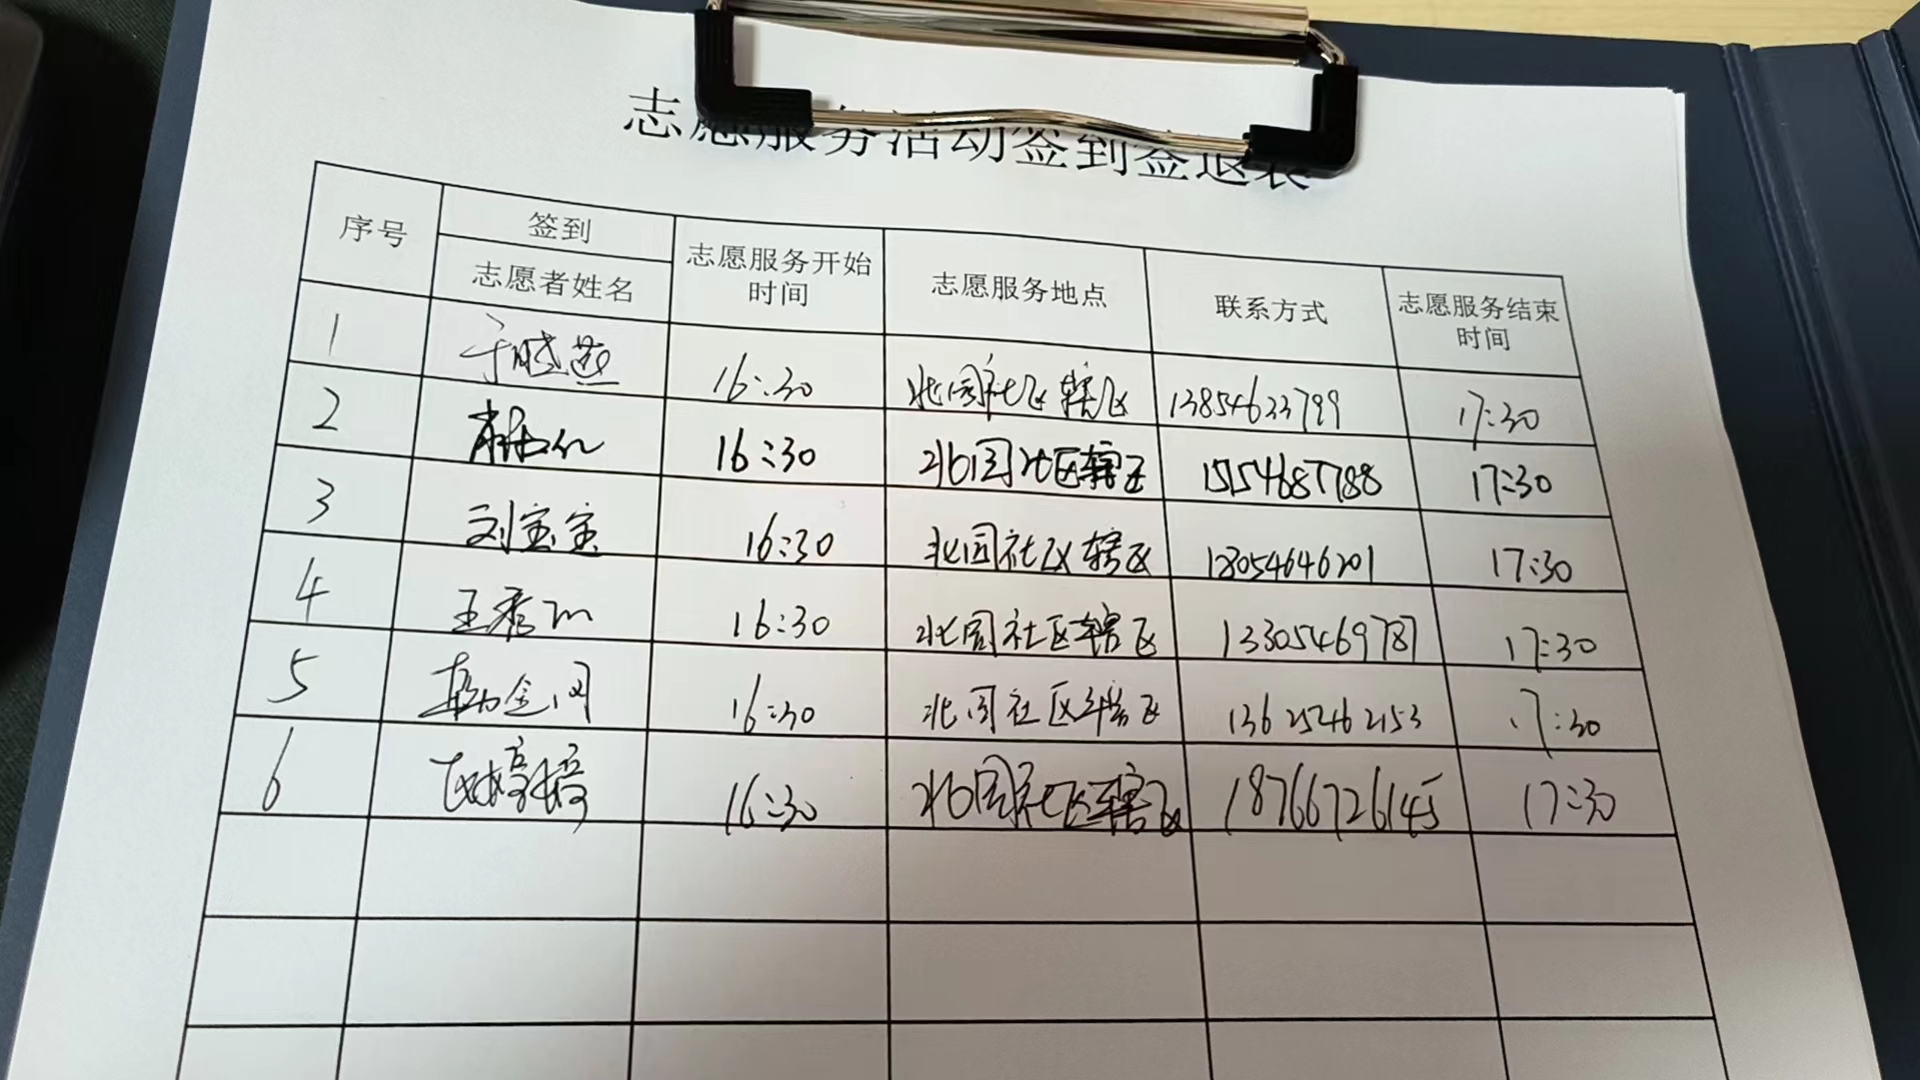 志愿服务活动签到签退表
序号 签到 志愿服务开始时间 志愿服务地点 联系方式 志愿服务结束时间
志愿者姓名
1 16:30 北园社区辖区 13854633799 17:30
2 16:30 北园社区辖区 15154687788 17:30
3 刘宝宝 16:30 北园社区辖区 18054646201 17:30
4 王秀 16:30 北园社区辖区 13305469787 17:30
5 16:30 北园社区辖区 13625462153 17:30
6 16:30 北园社区辖区 18766726145 17:30